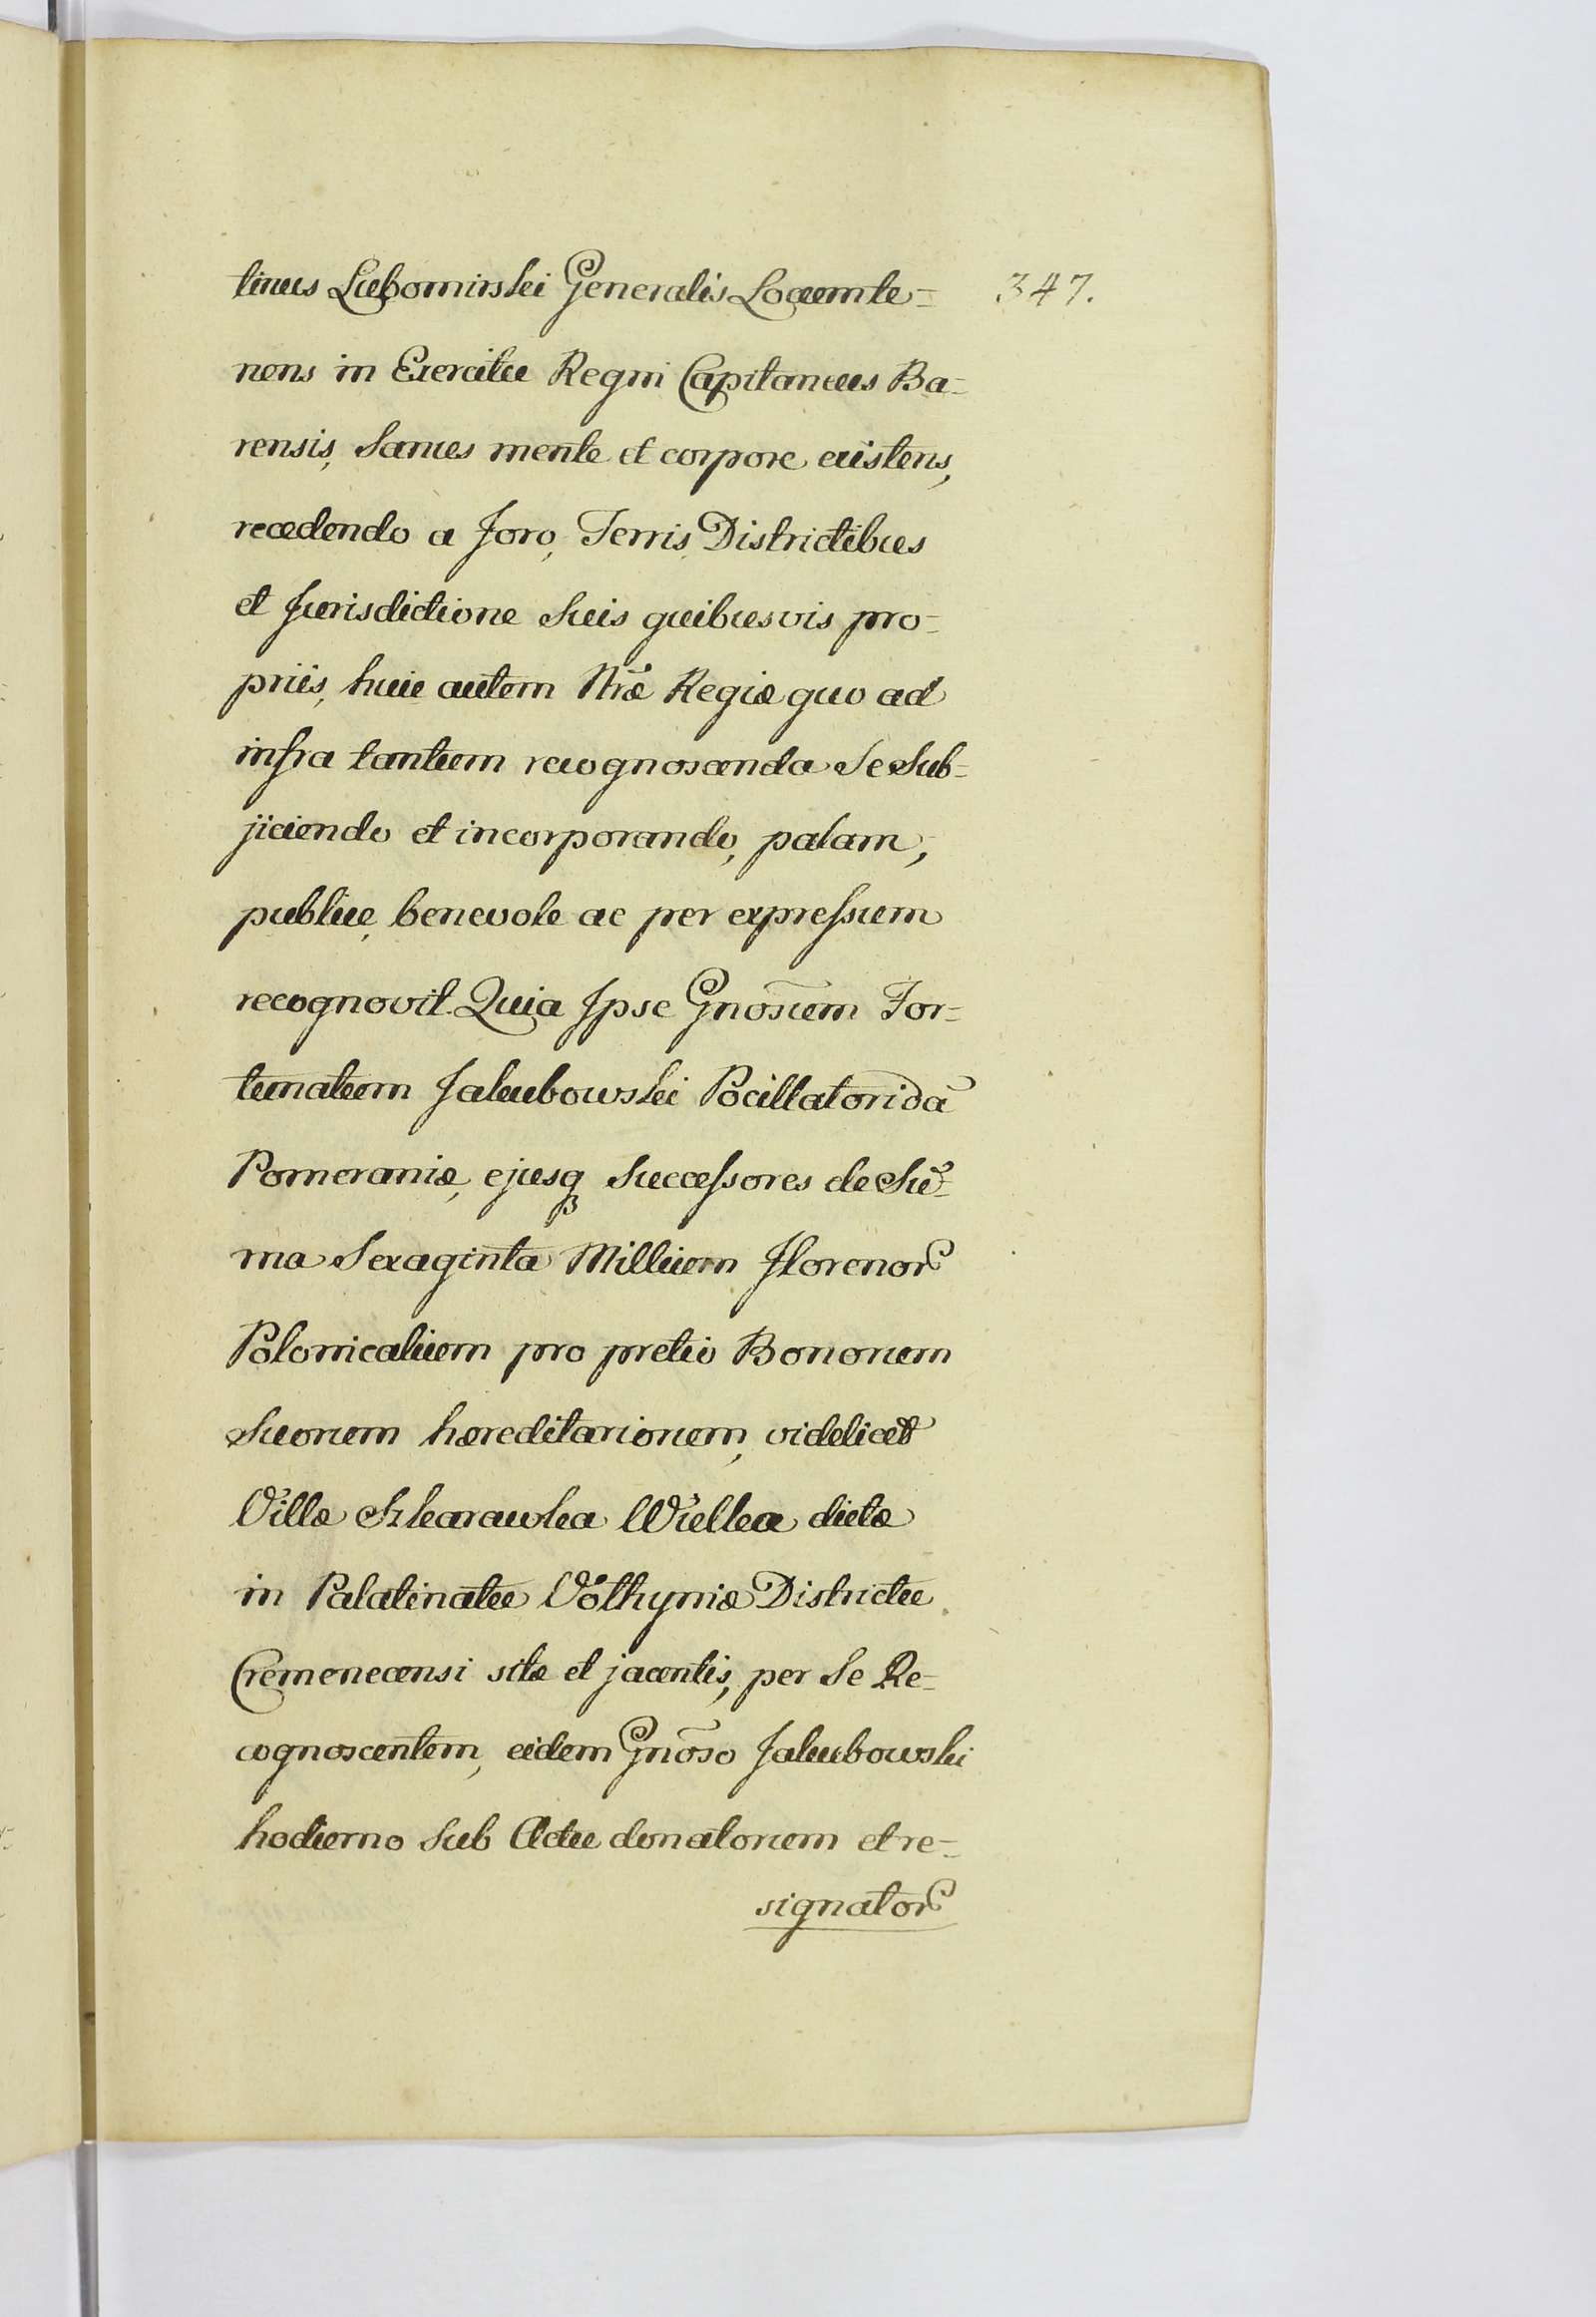 tinus Lubomirski Generalis Locumte= 347.
nens in Exercitu Regni Capitaneus Ba=
rensis, Sanus mente et corpore existens,
recedendo a Foro, Terris, Districtibus
et Jurisdictione Suis quibusvis pro=
priis, huic autem Nræ Regiæ quo ad
infra tantum recognoscenda Se Sub=
jiciendo et incorporando, palam,
publice, benevole ac per expressum
recognovit. Quia Ipse Gnosum For=
tunatum Jakubowski Pocillatoridã
Pomeraniæ, ejusq Successores de Sũ=
ma Sexaginta Millium Florenor
Polonicalium pro pretio Bonorum
Suorum hæreditariorum, videlicet
Villæ Szkarawka Wielka dictæ
in Palatinatu Volhyniæ Districtu
Cremenecensi sitæ et jacentis, per Se Re=
cognoscentem, eidem Gnoso Jakubowski
hodierno Sub Actu donatorum et re=
signator